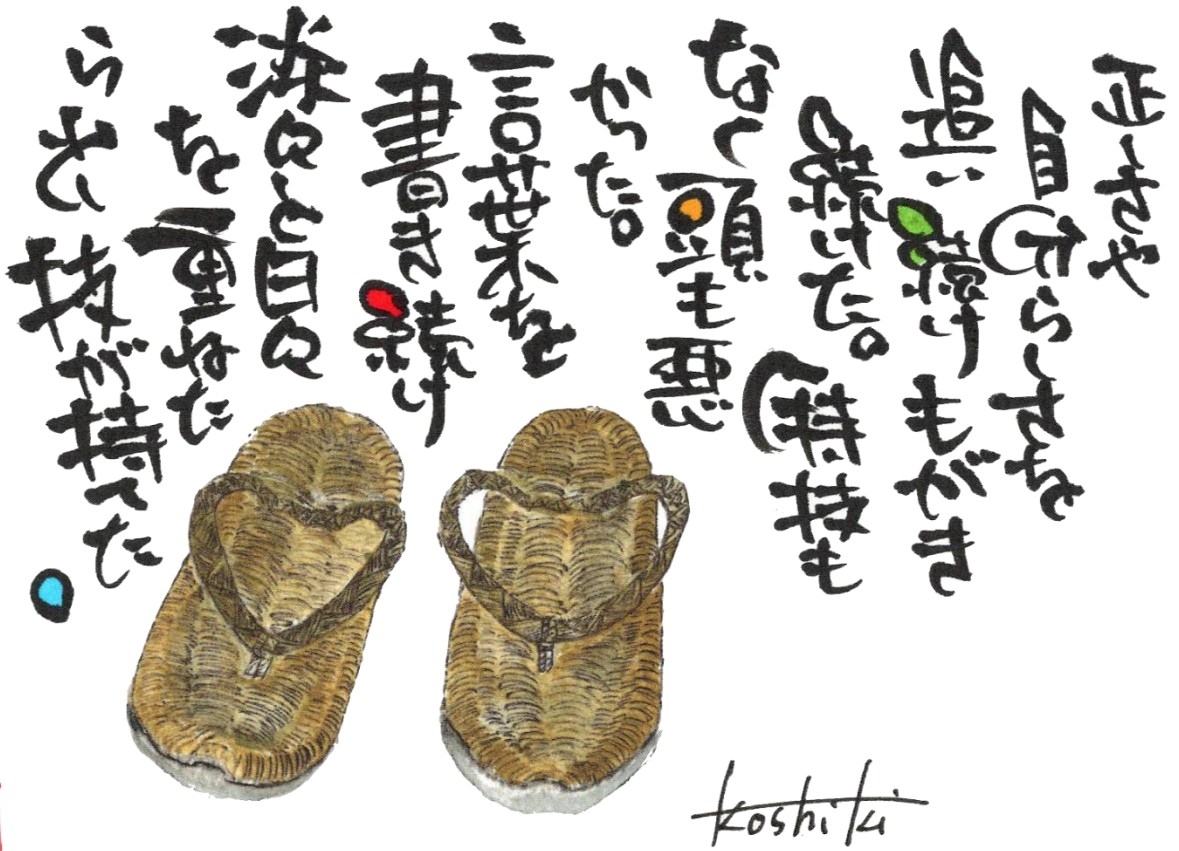 正しさや
自分らしさを
追い続けもがき
続けた。特技も
なく頭も悪
かった。
言葉を
書き続け
淡々と日々
を重ねた
ら 技が持てた。
koshiki